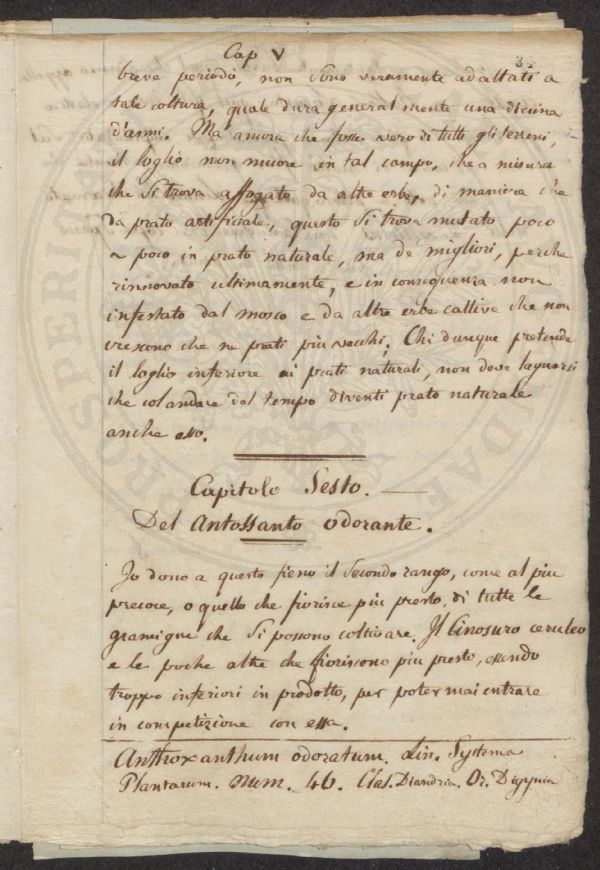 Cap V
34
breve periodo, non sono veramente adattati a
tale coltura, quale dura generalmente una dicina
d'anni. Ma ancora che fosse vero di tutti gli terreni,
il loglio non muore in tal campo, che a misura
che si trova affogato da altre erbe, di maniera che
da prato artificiale, questo si trova mutato poco
a poco in prato naturale, ma de' migliori, perche
rinnovato ultimamente, e in conseguenza non
infestato dal mosco e da altre erbe cattive che non
crescono che ne prati più vecchi. Chi dunque pretende
il loglio inferiore ai prati naturali, non deve lagnarsi
che col andare del tempo diventi prato naturale
anche esso.
Capitolo Sesto.
Del Antossanto odorante.
Io dono a questo fieno il secondo rango, come al più
precoce, o quello che fiorisce più presto, di tutte le
gramigne che si possono coltivare. Il Cinosuro ceruleo
e le poche altre che fioriscono più presto, essendo
troppo inferiori in prodotto, per poter mai entrare
in competizione con essa.
Anthoxanthum odoratum. Lin. Systema
Plantarum. num. 46. Clas. Diandria. Or. Digynia
PROSPERITA